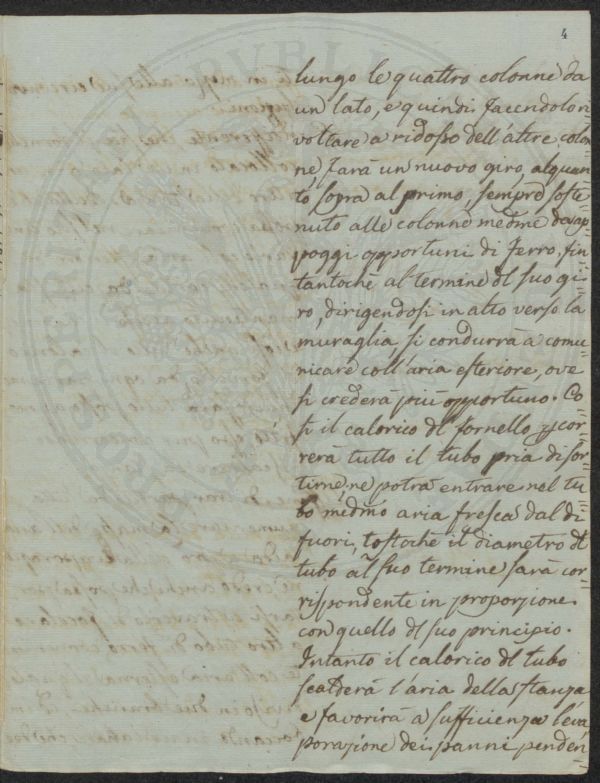 4
lungo le quattro colonne da
un lato, e quindi facendolo ri=
voltare a ridosso dell'altre colon=
ne farà un nuovo giro, alquan=
to sopra al primo, sempre soste=
nuto alle colonne medme da ap=
poggi opportuni di ferro, fin=
tantochè al termine dl suo gi=
ro, dirigendosi in alto verso la
muraglia, si condurrà a comu=
nicare coll'aria esteriore, ove
si crederà più opportuno. Co=
sì il calorico dl fornello scor=
rerà tutto il tubo pria di sor=
tirne, ne potrà entrare nel tu=
bo medmo aria fresca dal di
fuori, tostochè il diametro dl
tubo al suo termine sarà cor=
rispondente in proporzione
con quello dl suo principio.
Intanto il calorico dl tubo
scalderà l'aria della stanza
e favorirà a sufficienza l'eva=
porazione dei panni penden=